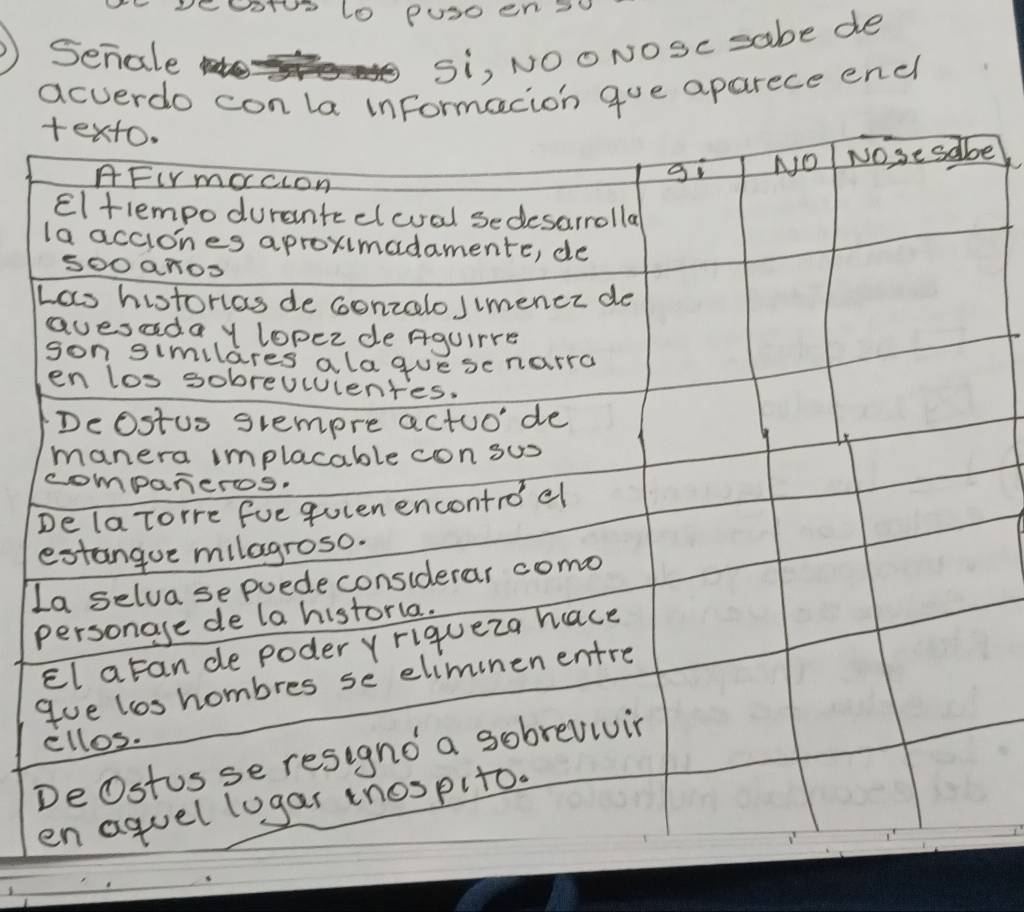 De Ostus lo puso en su
Señale si, NO O NO se sabe de
acuerdo con la información que aparece en el
texto.
AFirmacion si NO NO se sabe
El tiempo durante el cual se desarrolla
la acción es aproximadamente, de
500 años
Las historias de Gonzalo Jimenez de
quesada y lopez de Aguirre
son similares a la que se narra
en los sobrevivientes.
De Ostus siempre actuó de
manera implacable con sus
compañeros.
De la Torre fue quien encontró el
estanque milagroso.
La selva se puede considerar como
personaje de la historia.
El aFan de poder y riqueza hace
que los hombres se eliminen entre
ellos.
De Ostus se resignó a sobrevivir
en aquel lugar inospito.